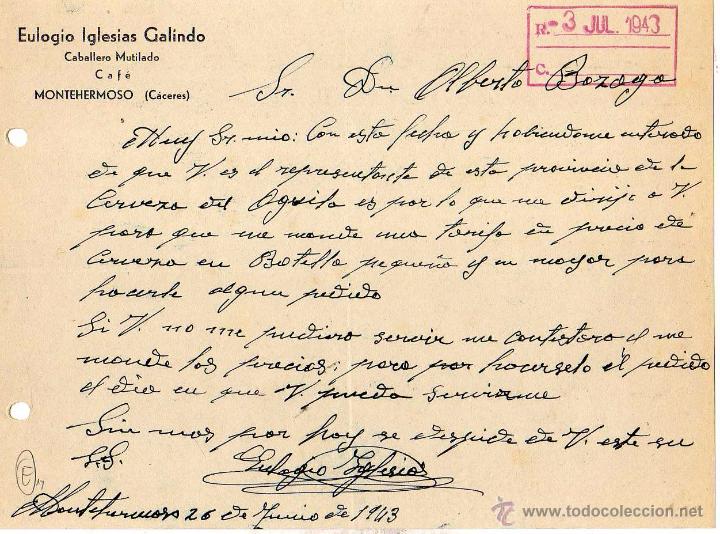 Eulogio Iglesias Galindo
Caballero Mutilado
Café
MONTEHERMOSO (Cáceres)
R.- 3 JUL. 1943
C.
Sr. Dn Alberto Bozago
Muy Sr. mio: Con esta fecha y habiendome enterado
de que V. es el representante de esta provincia de la
Cerveza del Aguila es por lo que me dirijo a V.
para que me mande una tarifa en precio de
Cerveza en Botella pequeña y en mayor para
hacerle algun pedido
Si V. no me pudiera servir me contestara el me
mande los precios; para por hacerselo el pedido
el dia en que V. pueda servirme
Sin mas por hoy se despide de V. este su
S.S.
Eulogio Iglesias
Montehermoso 26 de Junio de 1943
www.todocoleccion.net